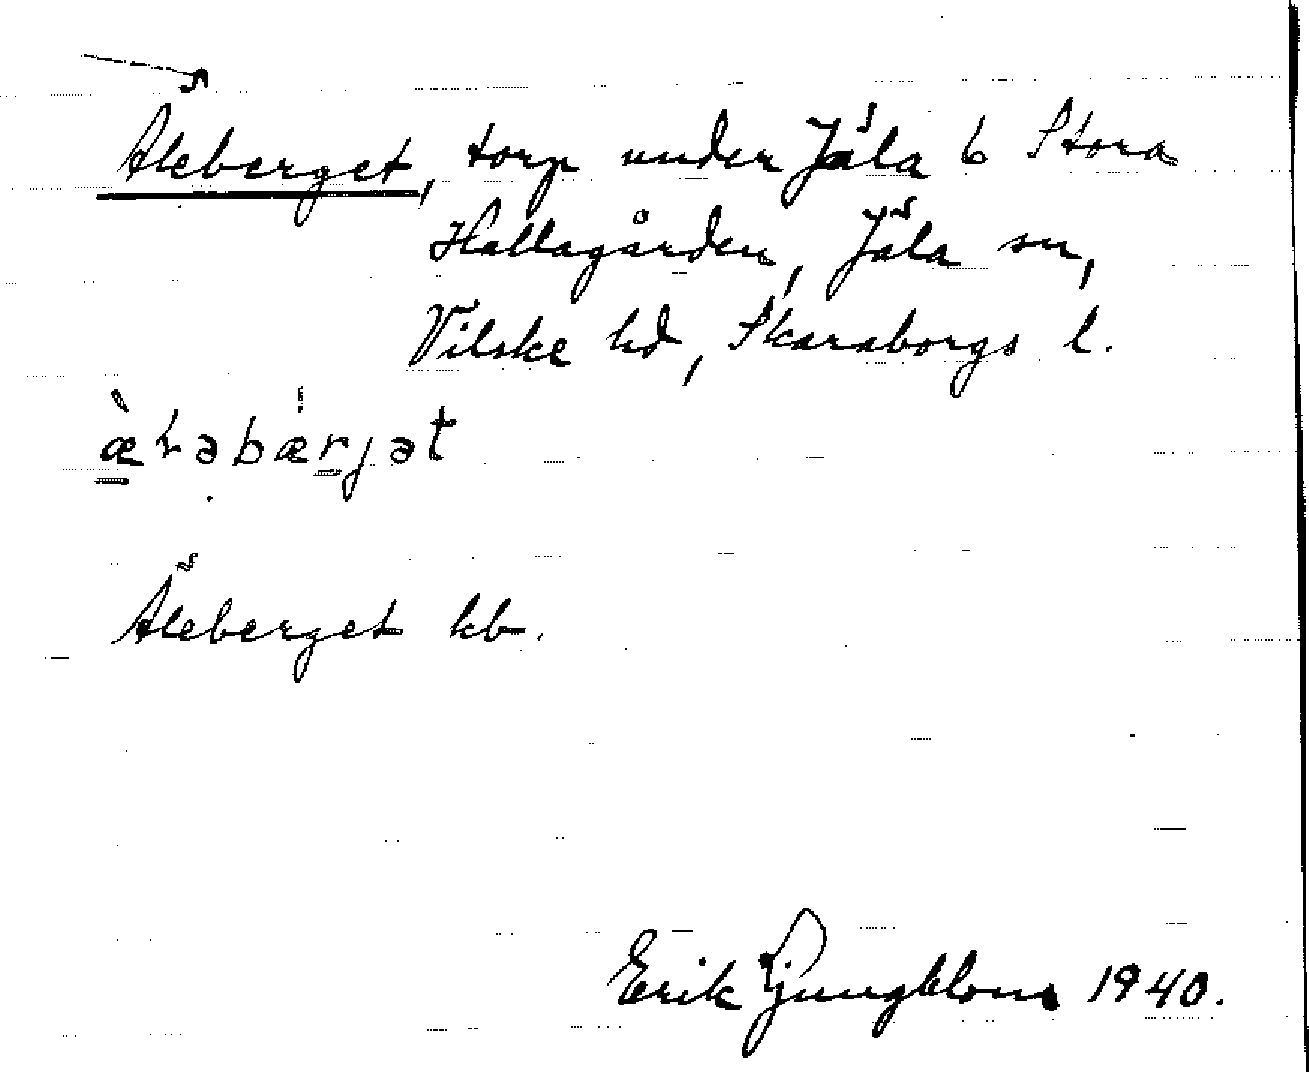 Äleberget, torp under Jäla 6 Stora
Hallagården, Jäla sn,
Vilske hd, Skaraborgs l.
Äleberget kb.
Erik Ljungblom 1940.